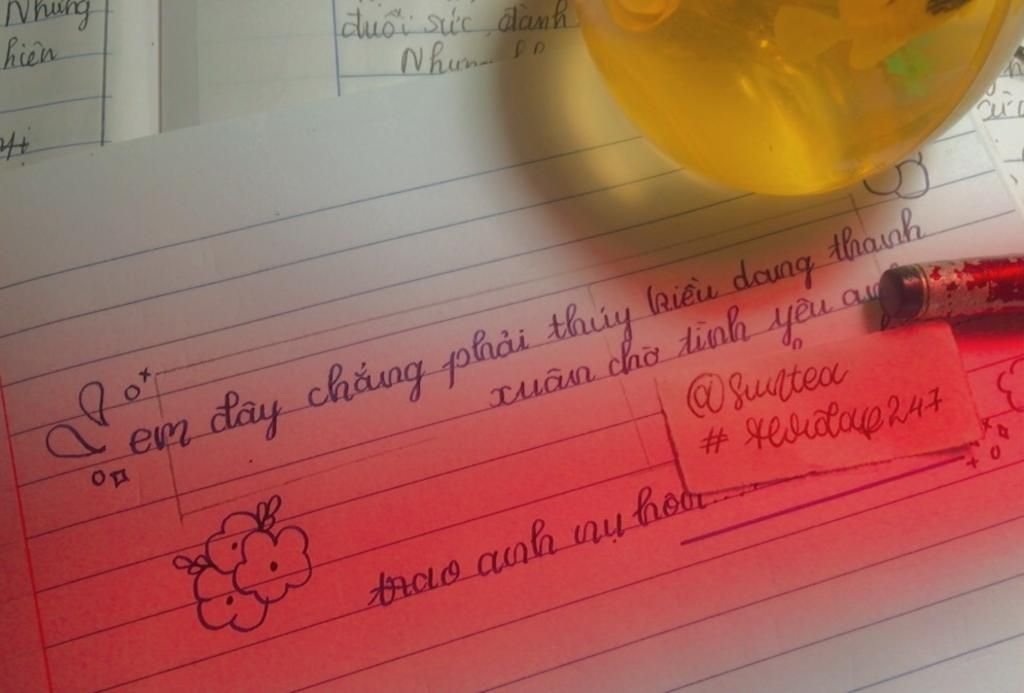 Nhưng
hiên
đuối sức, đành
em đây chẳng phải thúy kiều dang thanh
xuân chờ tình yêu
@Suntea
trao anh nụ hôn......